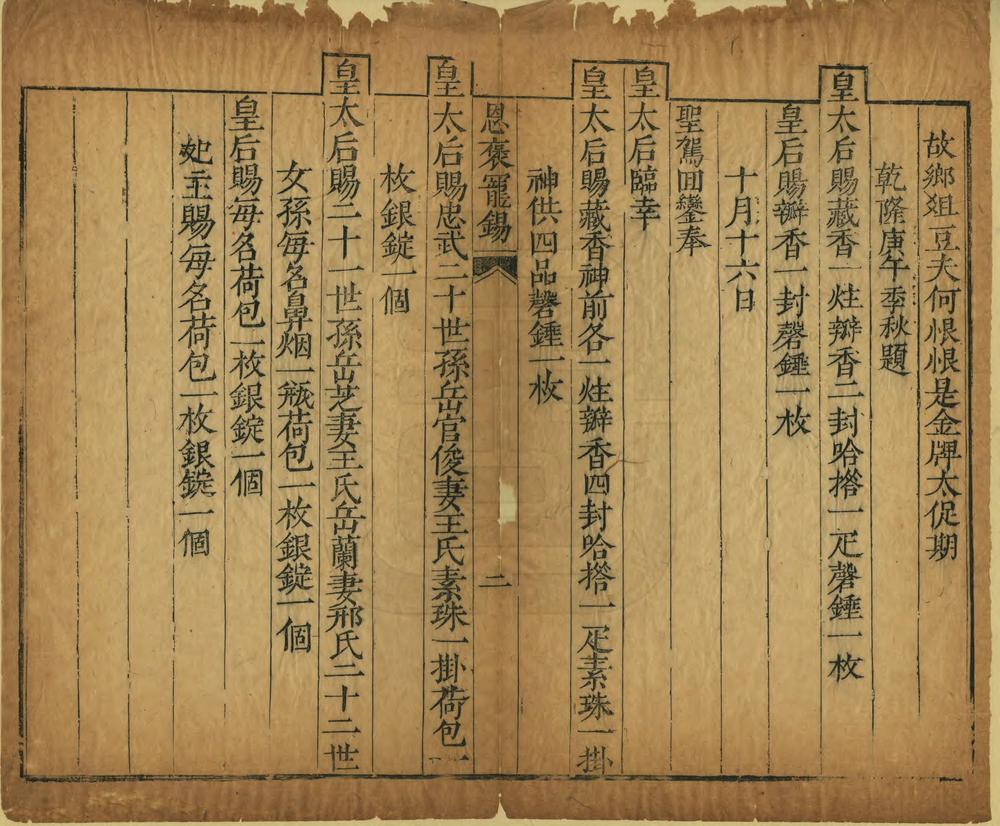 故鄉俎豆夫何恨恨是金牌太促期
乾隆庚午季秋題
皇太后賜藏香一炷瓣香二封哈撘一疋磬錘一枚
皇后賜瓣香一封磬錘一枚
十月十六日
聖駕回鑾奉
皇太后臨幸
皇太后賜藏香神前各一炷瓣香四封哈撘一疋素珠一掛
神供四品磬錘一枚
恩褒寵錫
二
皇太后賜忠武二十世孫岳官俊妻王氏素珠一掛荷包一
枚銀錠一個
皇太后賜二十一世孫岳芝妻王氏岳蘭妻邢氏二十二世
女孫每名鼻烟一瓶荷包一枚銀錠一個
皇后賜每名荷包一枚銀錠一個
妃主賜每名荷包一枚銀錠一個